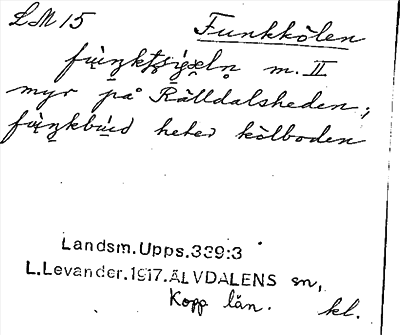 LM 15 Funkkölen
m. II
myr på Rälldalsheden;
heter kölboden
Landsm. Upps. 339:3
L. Levander. 1917. ÄLVDALENS sn,
Kopp län. kl.